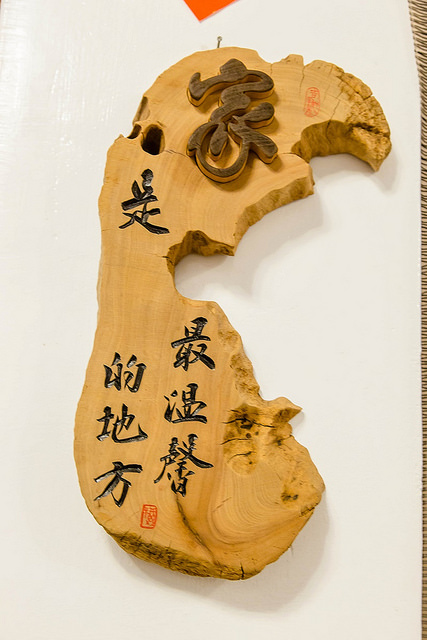 家
是
最溫馨
的地方